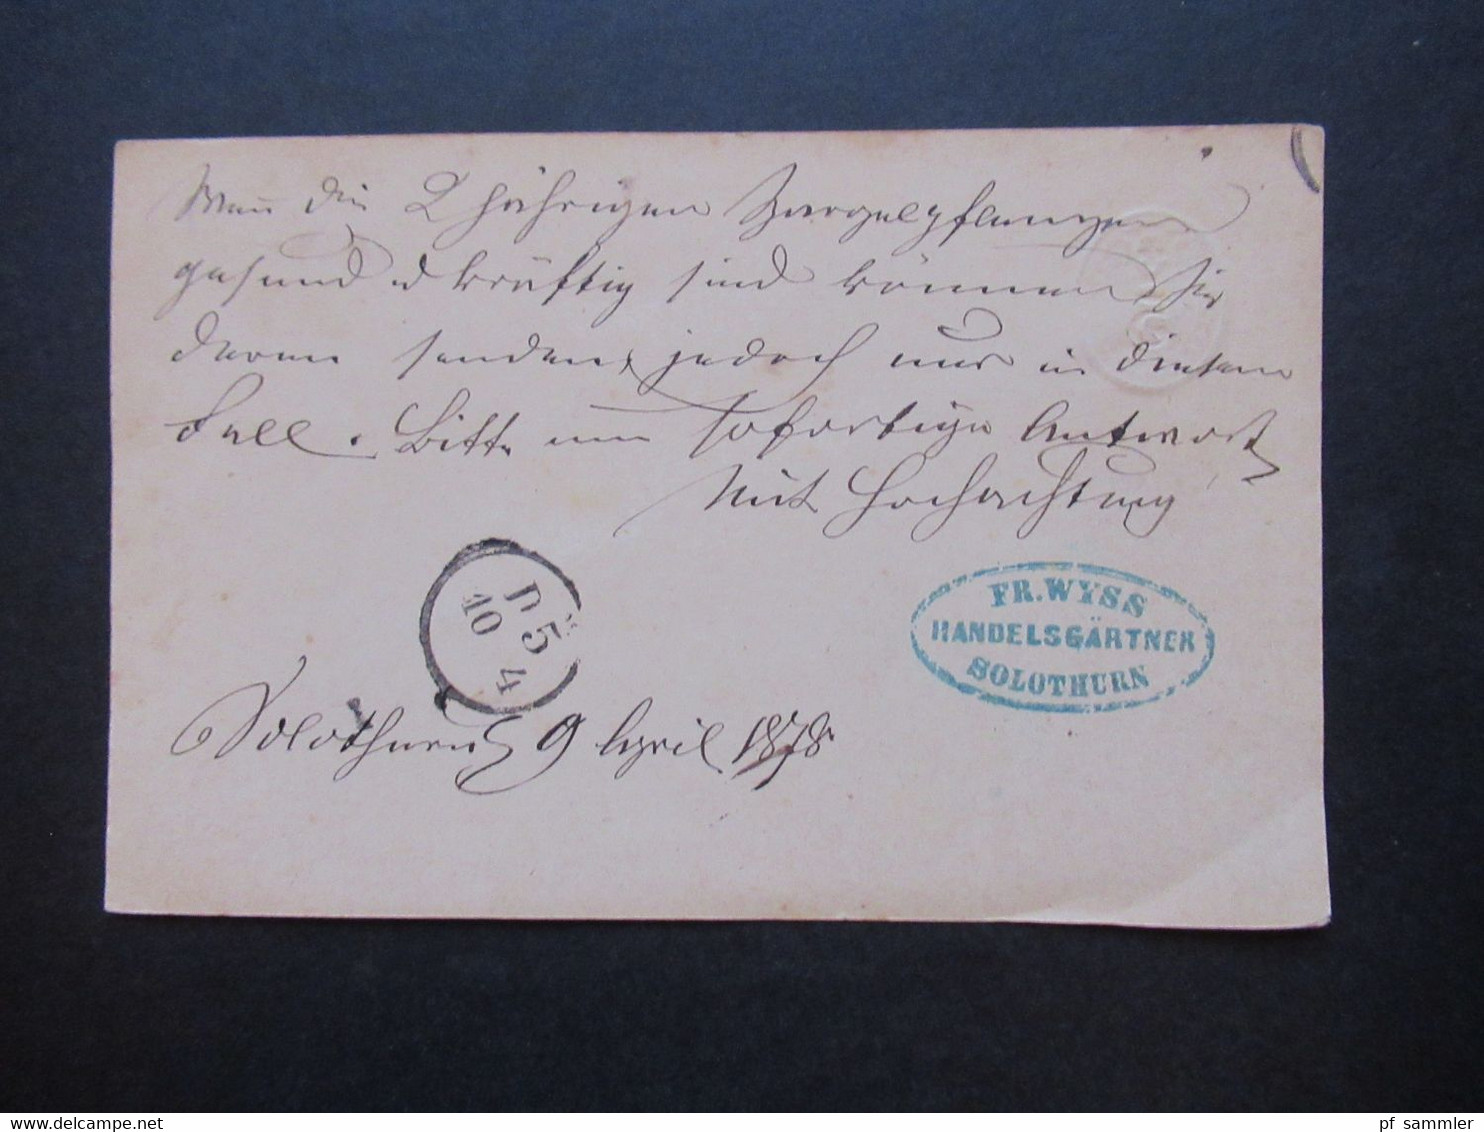 Wenn die 2 jährigen Spargelpflanzen
gesund & kräftig sind können Sie
davon senden, jedoch nur in diesem
Fall. Bitte um sofortige Antwort
Mit Hochachtung
FR. WYSS
HANDELSGÄRTNER
SOLOTHURN
N 5
10 4
Solothurn 9 April 1878
www.delcampe.net
pf_sammler